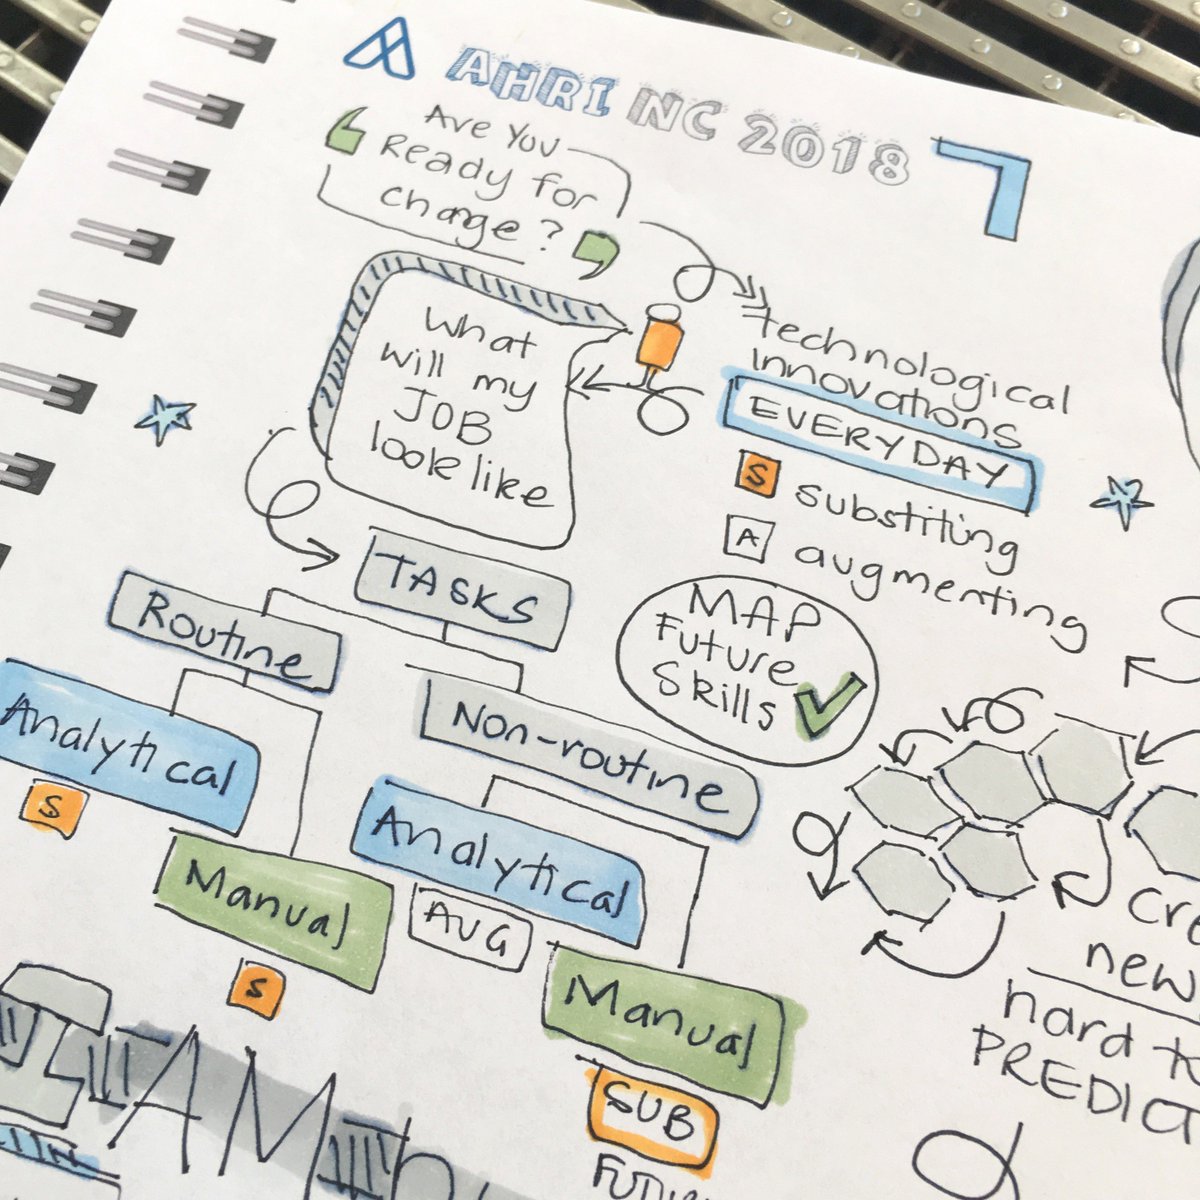 AHRI NC 2018
Are You
Ready for
change?
What
will my
JOB
look like
technological
innovations
EVERYDAY
S substiting
A augmenting
TASKS
Routine
Non-routine
Analytical
S
Manual
S
Analytical
AUG
Manual
SUB
MAP
Future
Skills
new
hard
PREDICT